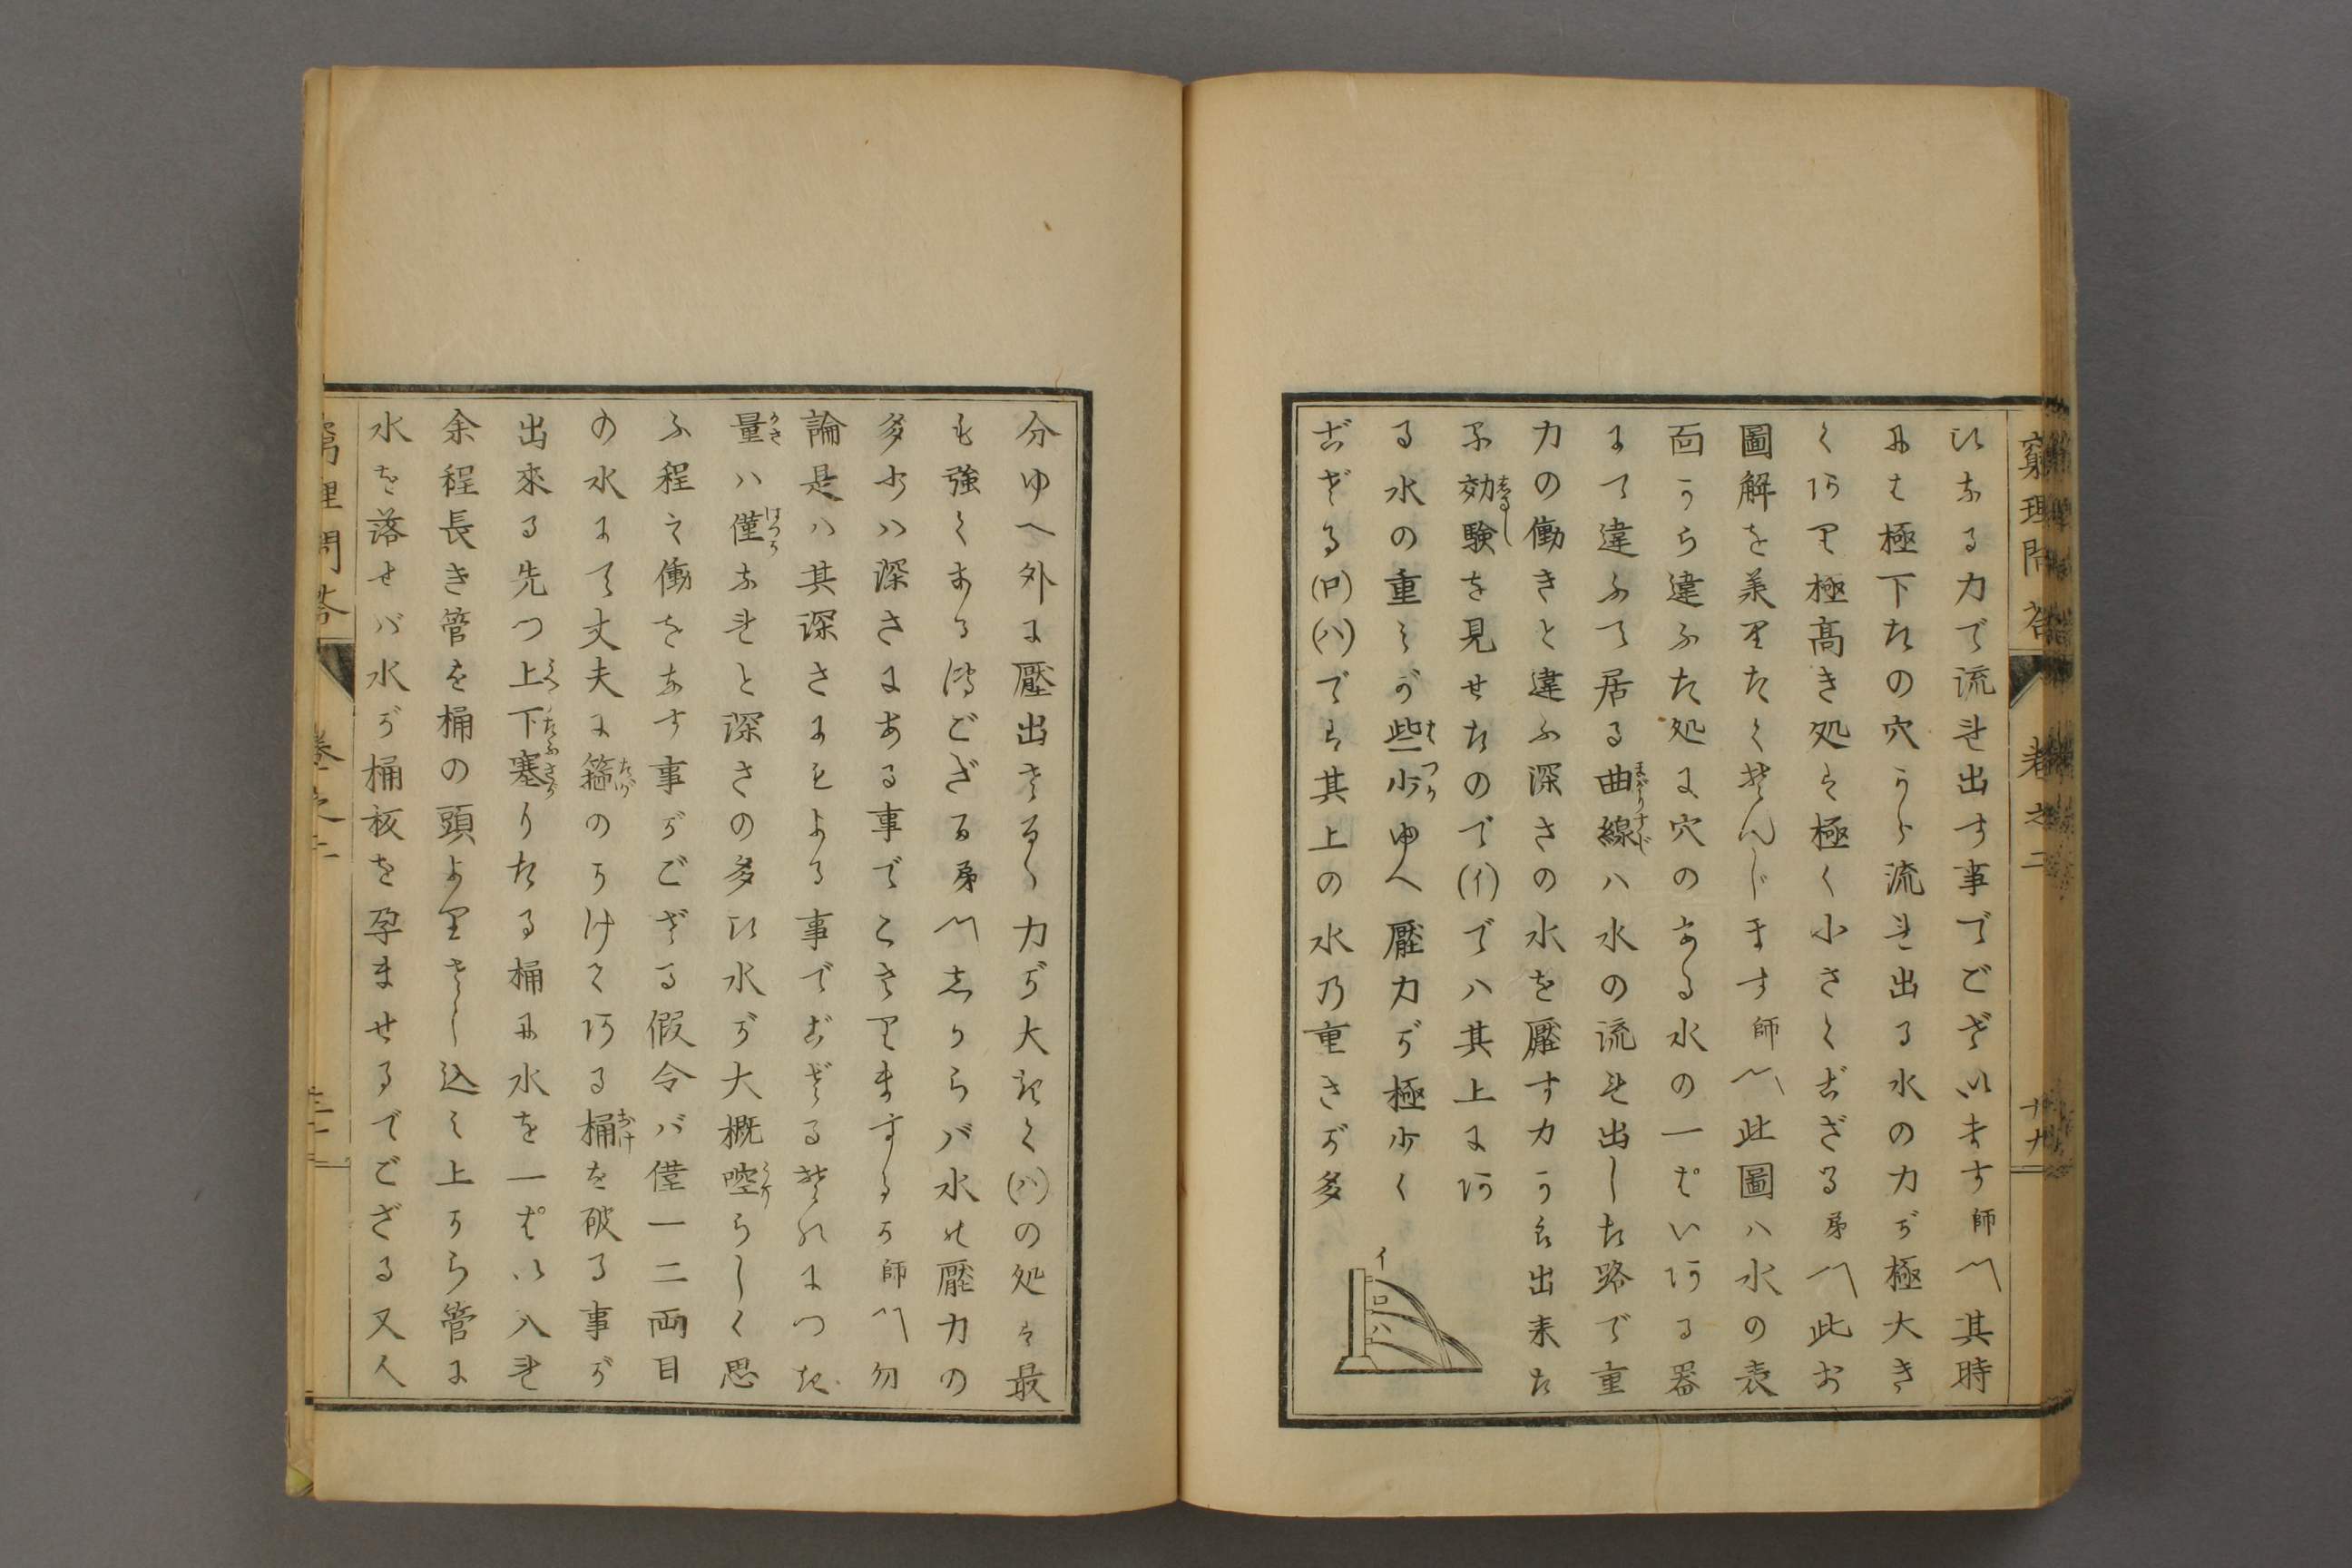 窮理問答 卷之二 十九
いなる力で流れ出す事でございます師〽其時
にも極下たの穴から流れ出る水の力が極大き
くあり極高き処は極く小さくござる弟〽此お
圖解を美りたくぞんじます師〽此圖ハ水の表
面から違ふた処に穴のある水の一ぱいある器
にて違ふて居る曲線ハ水の流れ出した路で重
力の働きと違ふ深さの水を壓す力から出来た
る効験を見せたので(イ)でハ其上にあ
る水の重みが些少ゆへ壓力が極少く
ござる(ロ)(ハ)では其上の水乃重さが多
イ
ロ
ハ
分ゆへ外に壓出さるゝ力が大きく(ハ)の処は最
も強くまゐつてござる弟〽しからバ水の壓力の
多少ハ深さにある事でござりまするか師〽勿
論是ハ其深さにもよる事でござるそれにつき
量ハ僅なれと深さの多い水が大概啌らしく思
ふ程之働をなす事がござる假令バ僅一二両目
の水にて丈夫に箍のかけてある桶を破る事が
出來る先つ上下塞りたる桶に水を一ぱい入れ
余程長き管を桶の頭よりさし込み上から管に
水を落せバ水が桶板を孕ませるでござる又人
窮理問答 卷之二